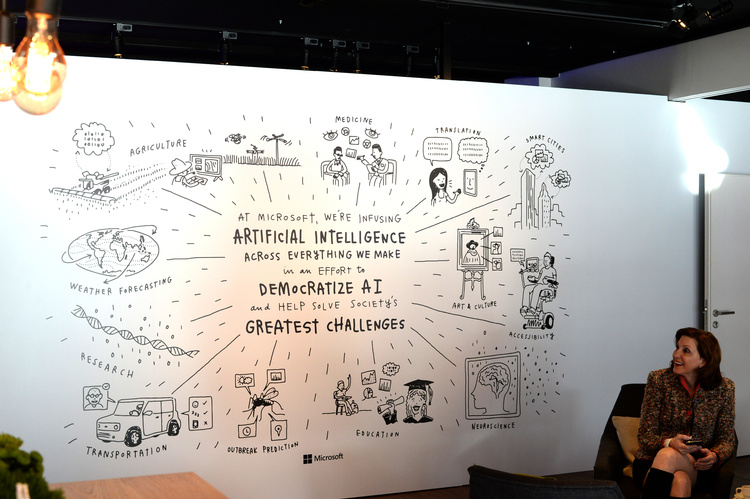 MEDICINE
TRANSLATION
AGRICULTURE
SMART CITIES
AT MICROSOFT, WE'RE INFUSING
ARTIFICIAL INTELLIGENCE
ACROSS EVERYTHING WE MAKE
in an EFFORT to
DEMOCRATIZE AI
and HELP SOLVE SOCIETY'S
GREATEST CHALLENGES
WEATHER FORECASTING
ART & CULTURE
ACCESSIBILITY
RESEARCH
TRANSPORTATION
OUTBREAK PREDICTION
EDUCATION
NEUROSCIENCE
Microsoft